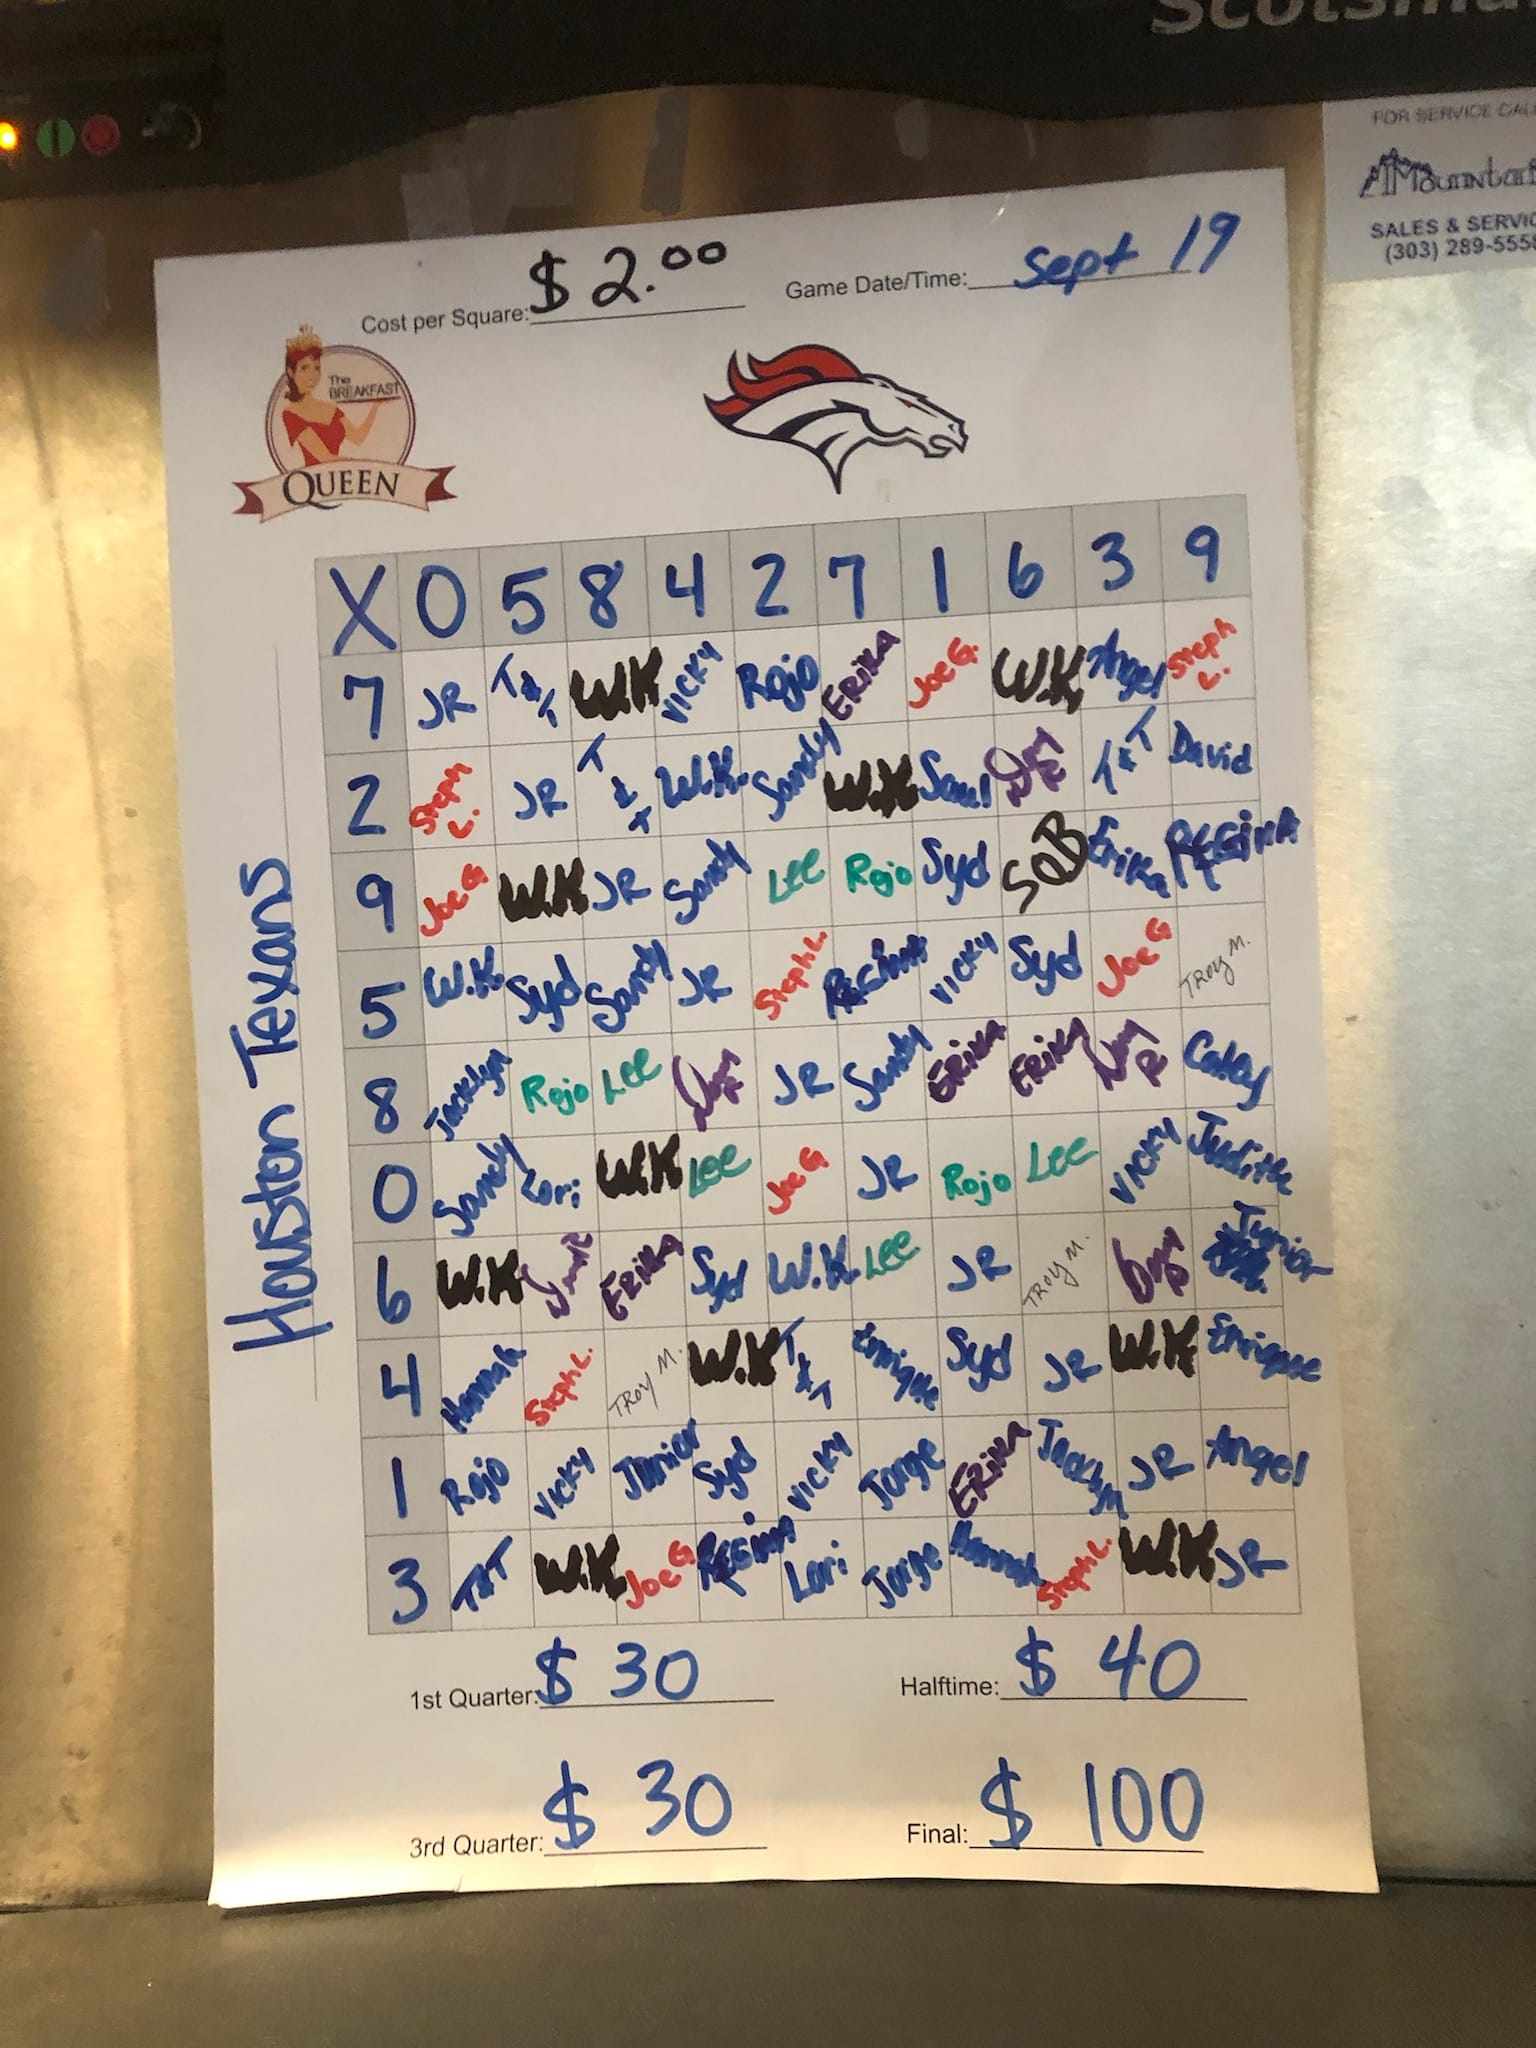 Scotsma
FOR SERVICE CAL
Mountai
SALES & SERVIC
(303) 289-5558
Cost per Square: $2.00
Game Date/Time: Sept 19
The
BREAKFAST
QUEEN
Houston Texans
X 0 5 8 4 2 7 1 6 3 9
7 JR T&T W.K VICKY Rojo ERIKA Joe G. W.K Angel Steph L.
2 Steph L. JR T&T W.K. Sandy W.K Saul Dany R T&T David
9 Joe G W.K JR Sandy LEE Rojo Syd SQB Erika REGINA
5 W.K Syd Sandy JR Steph L. REGINA VICKY Syd Joe G TROY M.
8 Jacklyn Rojo LEE Dany R JR Sandy ERIKA ERIKA Dany R Caley
0 Sandy Lori W.K LEE Joe G JR Rojo LEE VICKY Judith
6 W.K ERIKA Syd W.K LEE JR TROY M. Dany R Junior
4 Hannah Steph L. TROY M. W.K T&T Enrique Syd JR W.K Enrique
1 Rojo VICKY Junior Syd VICKY Jorge ERIKA Jacklyn JR Angel
3 T&T W.K Joe G REGINA Lori Jorge Hannah Steph L. W.K JR
1st Quarter: $30
Halftime: $40
3rd Quarter: $30
Final: $100